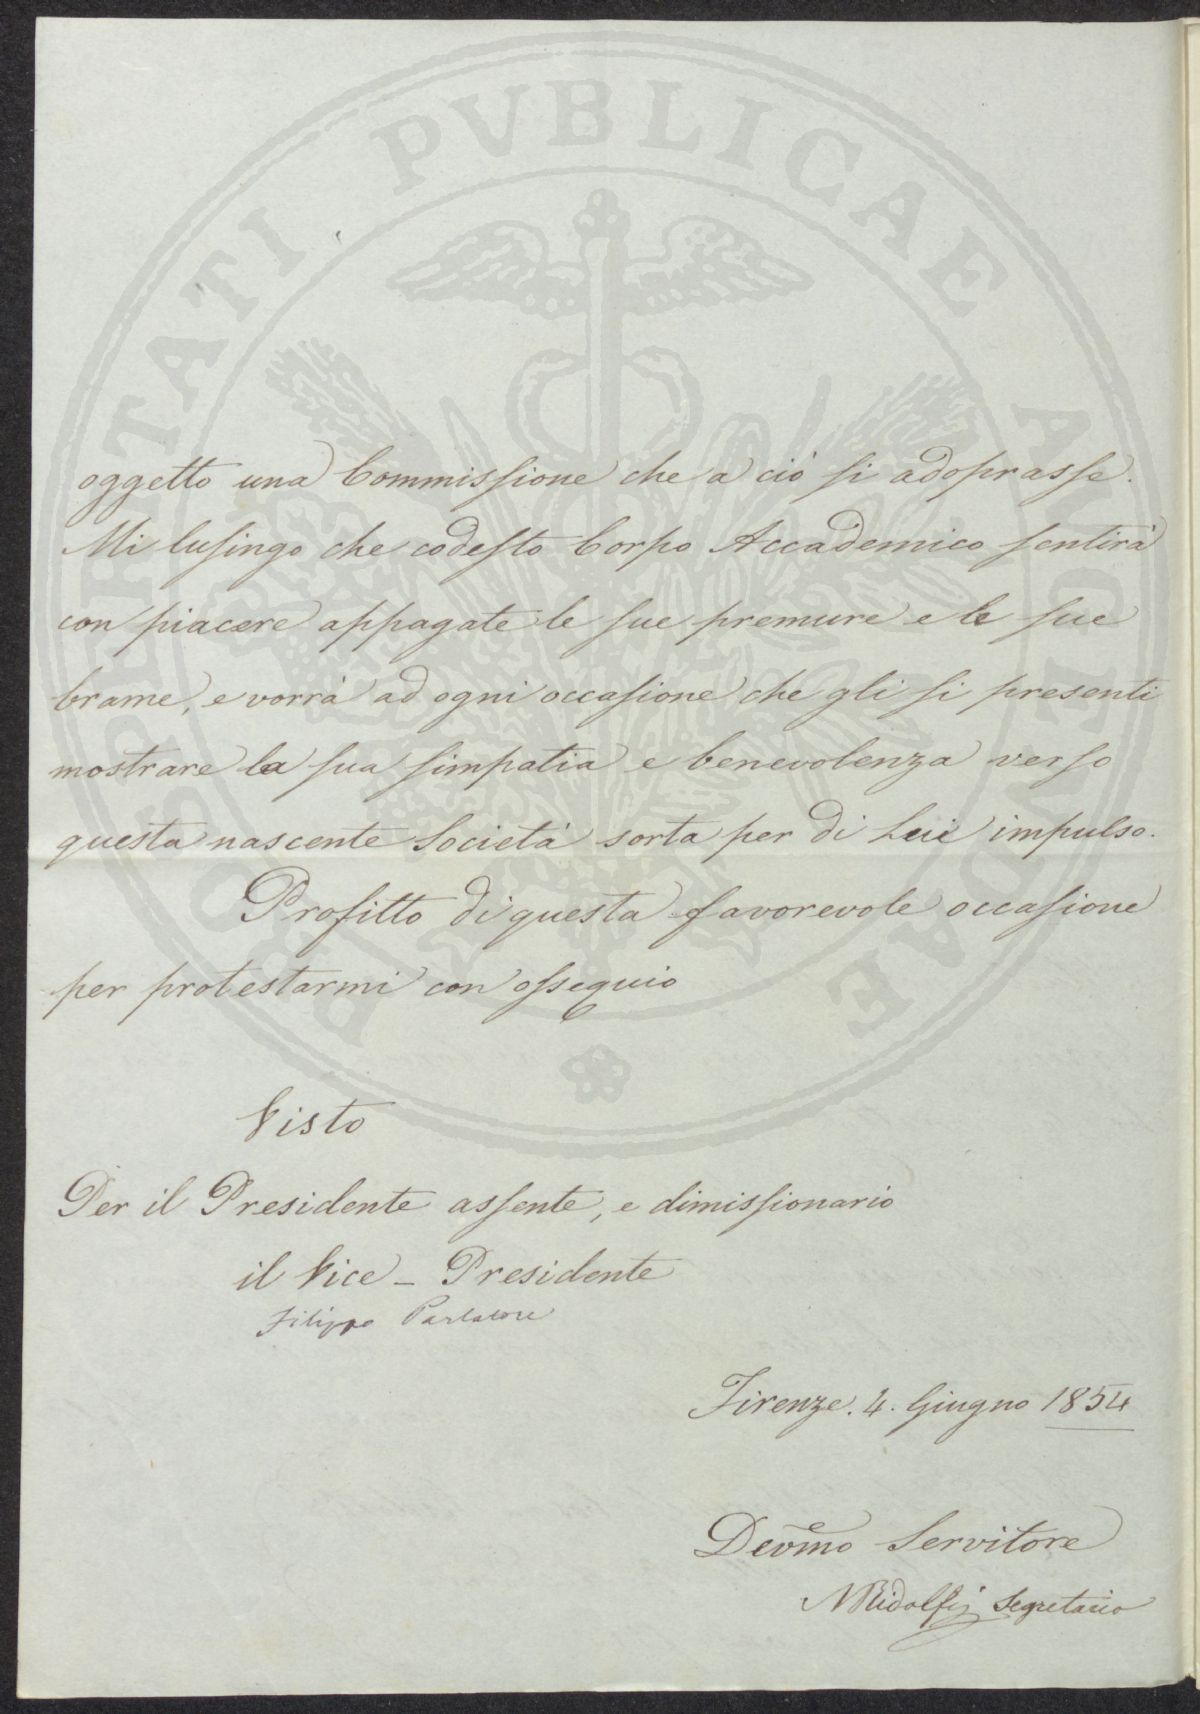 PROSPERITATI PVBLICAE AVGENDAE
oggetto una Commissione che a ciò si adoprasse.
Mi lusingo che codesto Corpo Accademico sentirà
con piacere appagate le sue premure e le sue
brame, e vorrà ad ogni occasione che gli si presenti
mostrare la sua simpatia e benevolenza verso
questa nascente Società sorta per di Lui impulso.
Profitto di questa favorevole occasione
per protestarmi con ossequio
Visto
Per il Presidente assente, e dimissionario
il Vice - Presidente
Filippo Parlatore
Firenze. 4. Giugno 1854
Devmo Servitore
NRidolfi Segretario